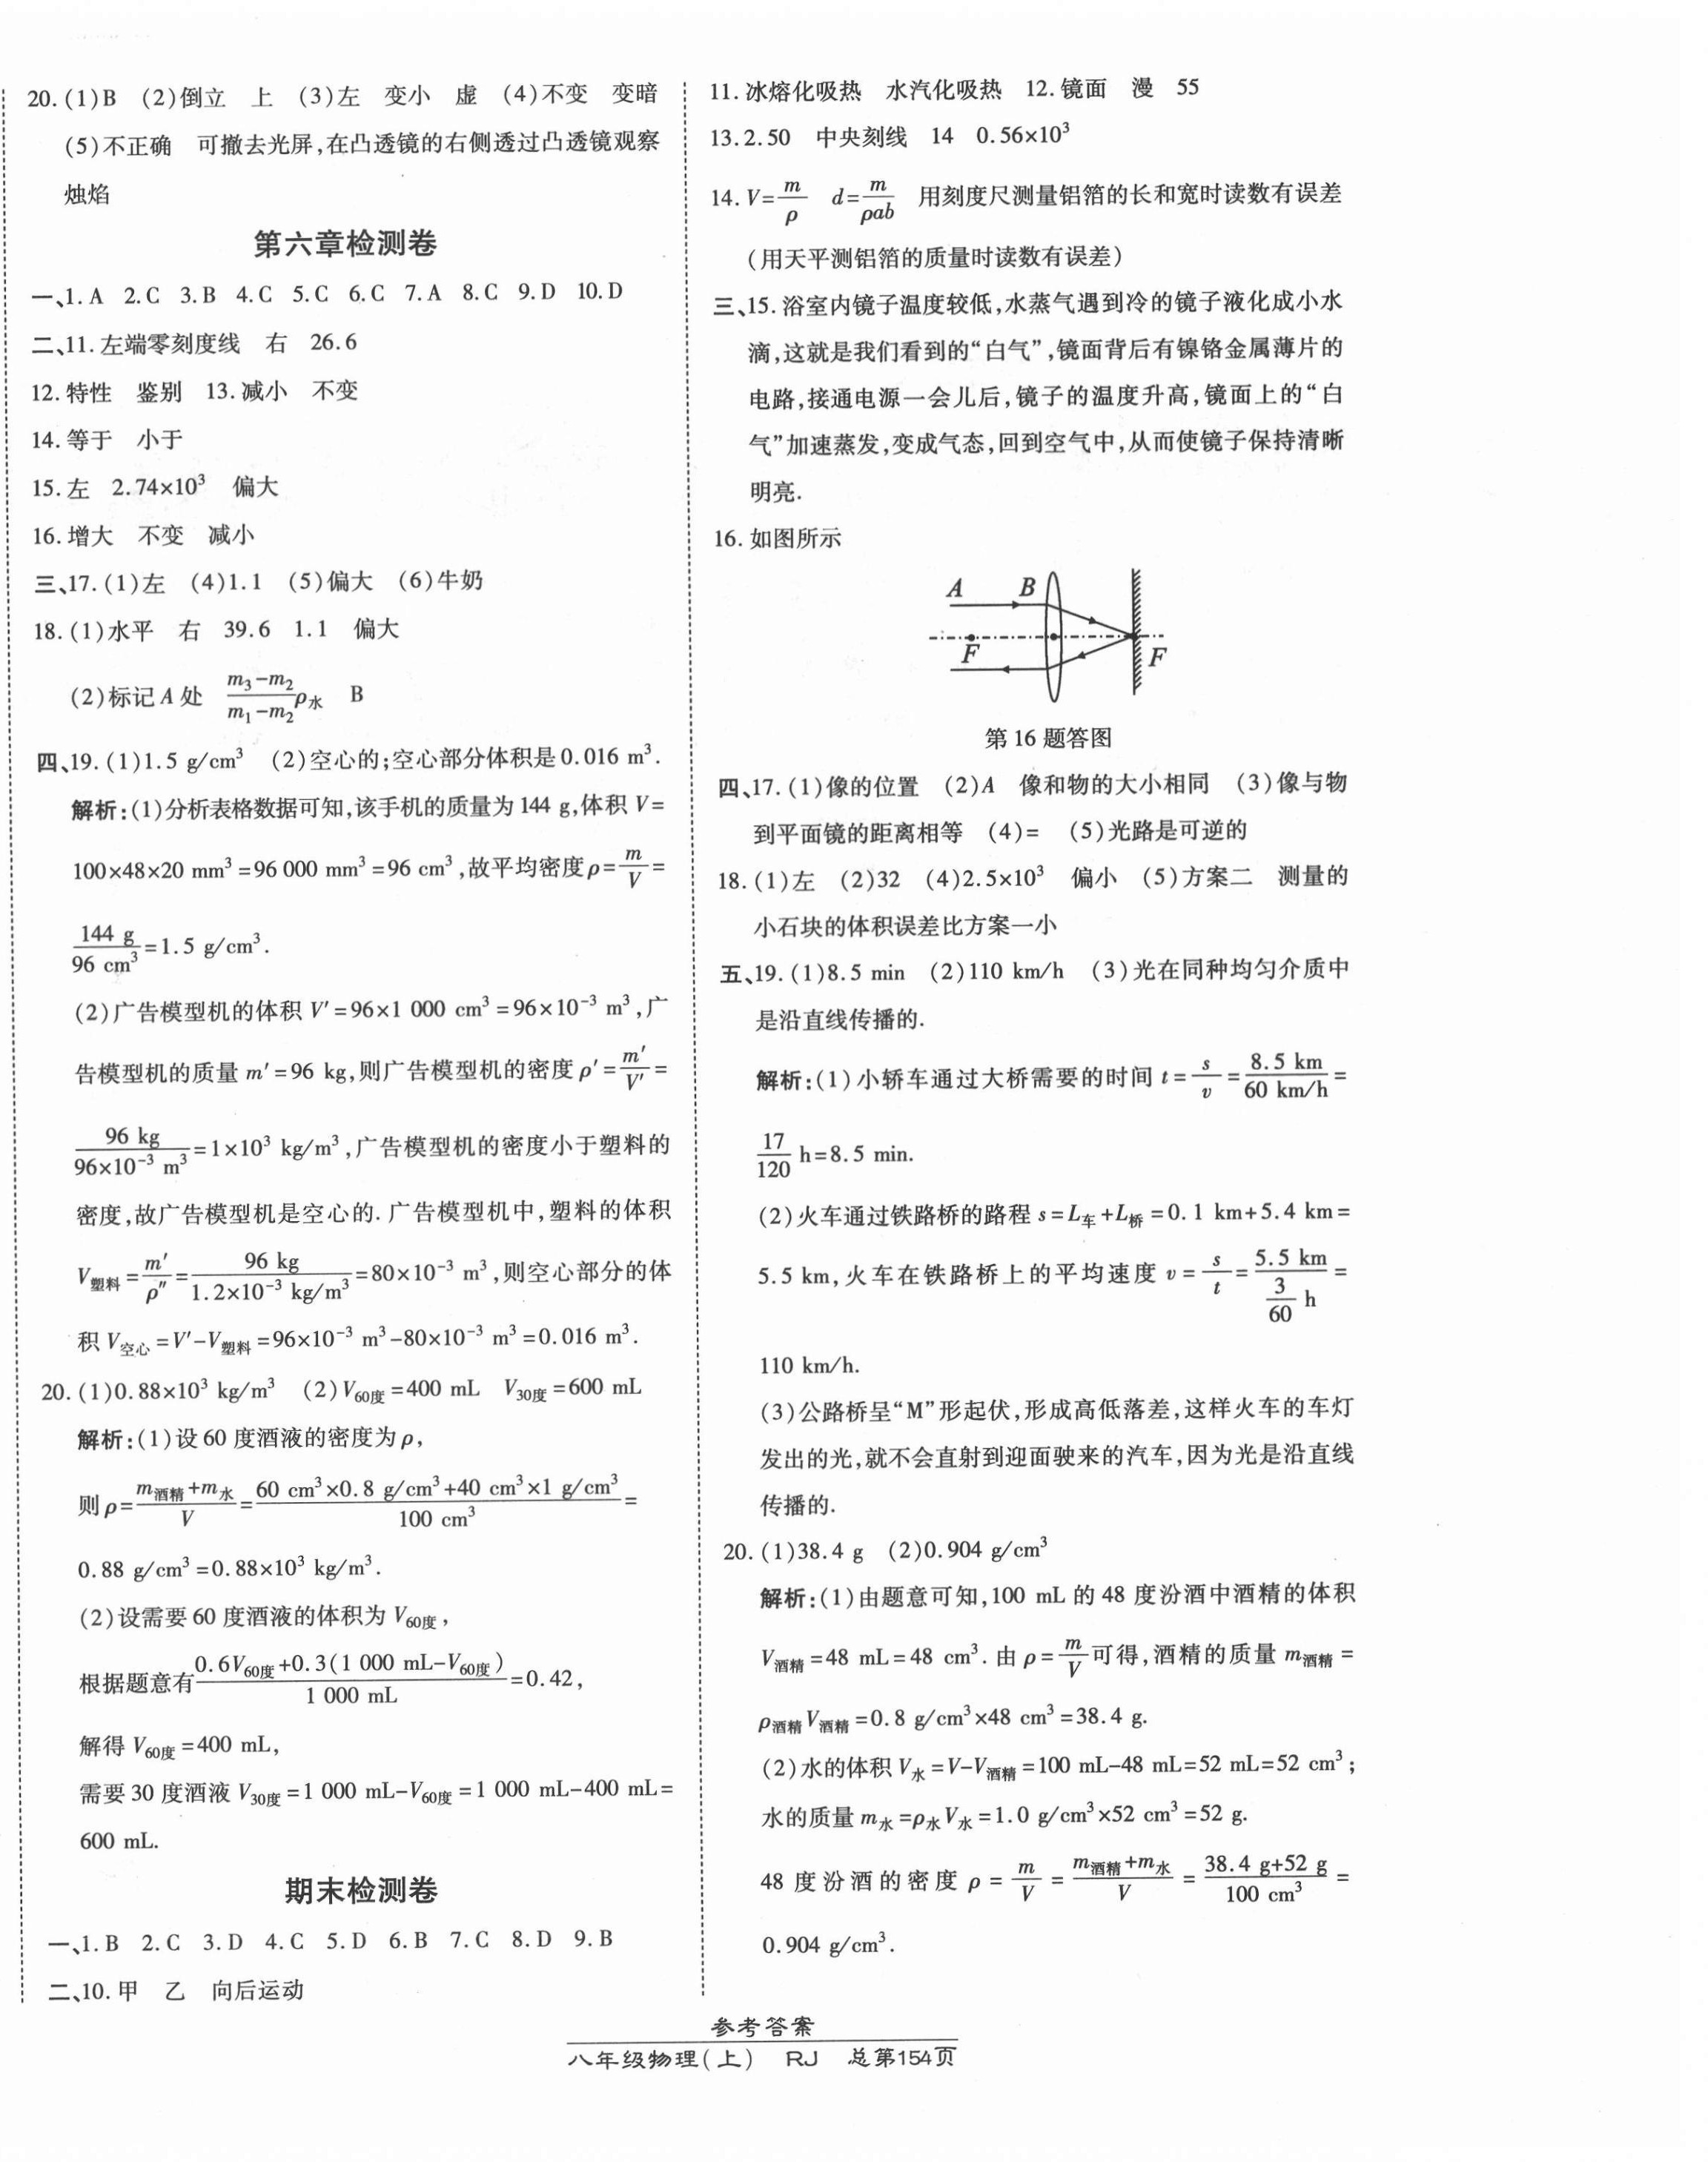 20.(1)B (2)倒立 上 (3)左 变小 虚 (4)不变 变暗
(5)不正确 可撤去光屏,在凸透镜的右侧透过凸透镜观察
烛焰
第六章检测卷
一、1.A 2.C 3.B 4.C 5.C 6.C 7.A 8.C 9.D 10.D
二、11.左端零刻度线 右 26.6
12.特性 鉴别 13.减小 不变
14.等于 小于
15.左 2.74×10³ 偏大
16.增大 不变 减小
三、17.(1)左 (4)1.1 (5)偏大 (6)牛奶
18.(1)水平 右 39.6 1.1 偏大
(2)标记A处 (m₃-m₂)/(m₁-m₂)ρ水 B
四、19.(1)1.5 g/cm³ (2)空心的;空心部分体积是0.016 m³.
解析:(1)分析表格数据可知,该手机的质量为144 g,体积V=
100×48×20 mm³=96 000 mm³=96 cm³,故平均密度ρ=m/V=
144 g/96 cm³=1.5 g/cm³.
(2)广告模型机的体积V′=96×1 000 cm³=96×10⁻³ m³,广
告模型机的质量m′=96 kg,则广告模型机的密度ρ′=m′/V′=
96 kg/(96×10⁻³ m³)=1×10³ kg/m³,广告模型机的密度小于塑料的
密度,故广告模型机是空心的.广告模型机中,塑料的体积
V塑料=m′/ρ″=96 kg/(1.2×10⁻³ kg/m³)=80×10⁻³ m³,则空心部分的体
积V空心=V′-V塑料=96×10⁻³ m³-80×10⁻³ m³=0.016 m³.
20.(1)0.88×10³ kg/m³ (2)V60度=400 mL V30度=600 mL
解析:(1)设60度酒液的密度为ρ,
则ρ=(m酒精+m水)/V=(60 cm³×0.8 g/cm³+40 cm³×1 g/cm³)/100 cm³=
0.88 g/cm³=0.88×10³ kg/m³.
(2)设需要60度酒液的体积为V60度,
根据题意有(0.6V60度+0.3(1 000 mL-V60度))/1 000 mL=0.42,
解得V60度=400 mL,
需要30度酒液V30度=1 000 mL-V60度=1 000 mL-400 mL=
600 mL.
期末检测卷
一、1.B 2.C 3.D 4.C 5.D 6.B 7.C 8.D 9.B
二、10.甲 乙 向后运动
11.冰熔化吸热 水汽化吸热 12.镜面 漫 55
13.2.50 中央刻线 14 0.56×10³
14.V=m/ρ d=m/ρab 用刻度尺测量铝箔的长和宽时读数有误差
(用天平测铝箔的质量时读数有误差)
三、15.浴室内镜子温度较低,水蒸气遇到冷的镜子液化成小水
滴,这就是我们看到的“白气”,镜面背后有镍铬金属薄片的
电路,接通电源一会儿后,镜子的温度升高,镜面上的“白
气”加速蒸发,变成气态,回到空气中,从而使镜子保持清晰
明亮.
16.如图所示
A B
F F
第16题答图
四、17.(1)像的位置 (2)A 像和物的大小相同 (3)像与物
到平面镜的距离相等 (4)= (5)光路是可逆的
18.(1)左 (2)32 (4)2.5×10³ 偏小 (5)方案二 测量的
小石块的体积误差比方案一小
五、19.(1)8.5 min (2)110 km/h (3)光在同种均匀介质中
是沿直线传播的.
解析:(1)小轿车通过大桥需要的时间t=s/v=8.5 km/60 km/h=
17/120 h=8.5 min.
(2)火车通过铁路桥的路程s=L车+L桥=0.1 km+5.4 km=
5.5 km,火车在铁路桥上的平均速度v=s/t=5.5 km/(3/60 h)=
110 km/h.
(3)公路桥呈“M”形起伏,形成高低落差,这样火车的车灯
发出的光,就不会直射到迎面驶来的汽车,因为光是沿直线
传播的.
20.(1)38.4 g (2)0.904 g/cm³
解析:(1)由题意可知,100 mL的48度汾酒中酒精的体积
V酒精=48 mL=48 cm³.由ρ=m/V可得,酒精的质量m酒精=
ρ酒精V酒精=0.8 g/cm³×48 cm³=38.4 g.
(2)水的体积V水=V-V酒精=100 mL-48 mL=52 mL=52 cm³;
水的质量m水=ρ水V水=1.0 g/cm³×52 cm³=52 g.
48度汾酒的密度ρ=m/V=(m酒精+m水)/V=(38.4 g+52 g)/100 cm³=
0.904 g/cm³.
参考答案
八年级物理(上) RJ 总第154页